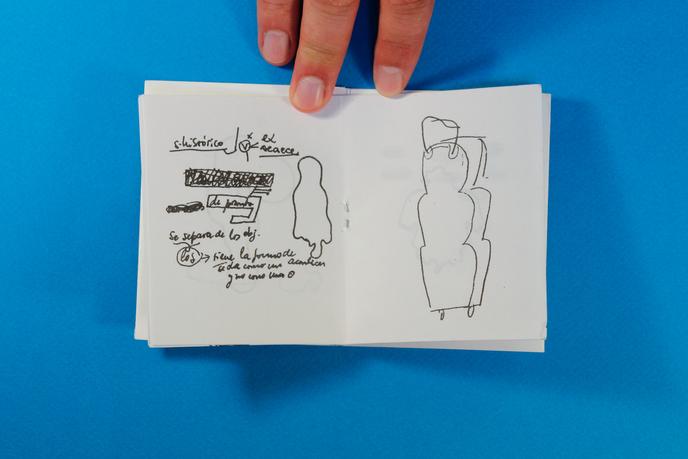 s. histórico
el
acaece
de pronto
Se separa de los obj.
los → tiene la forma de
vida como un acontecer
y no como una